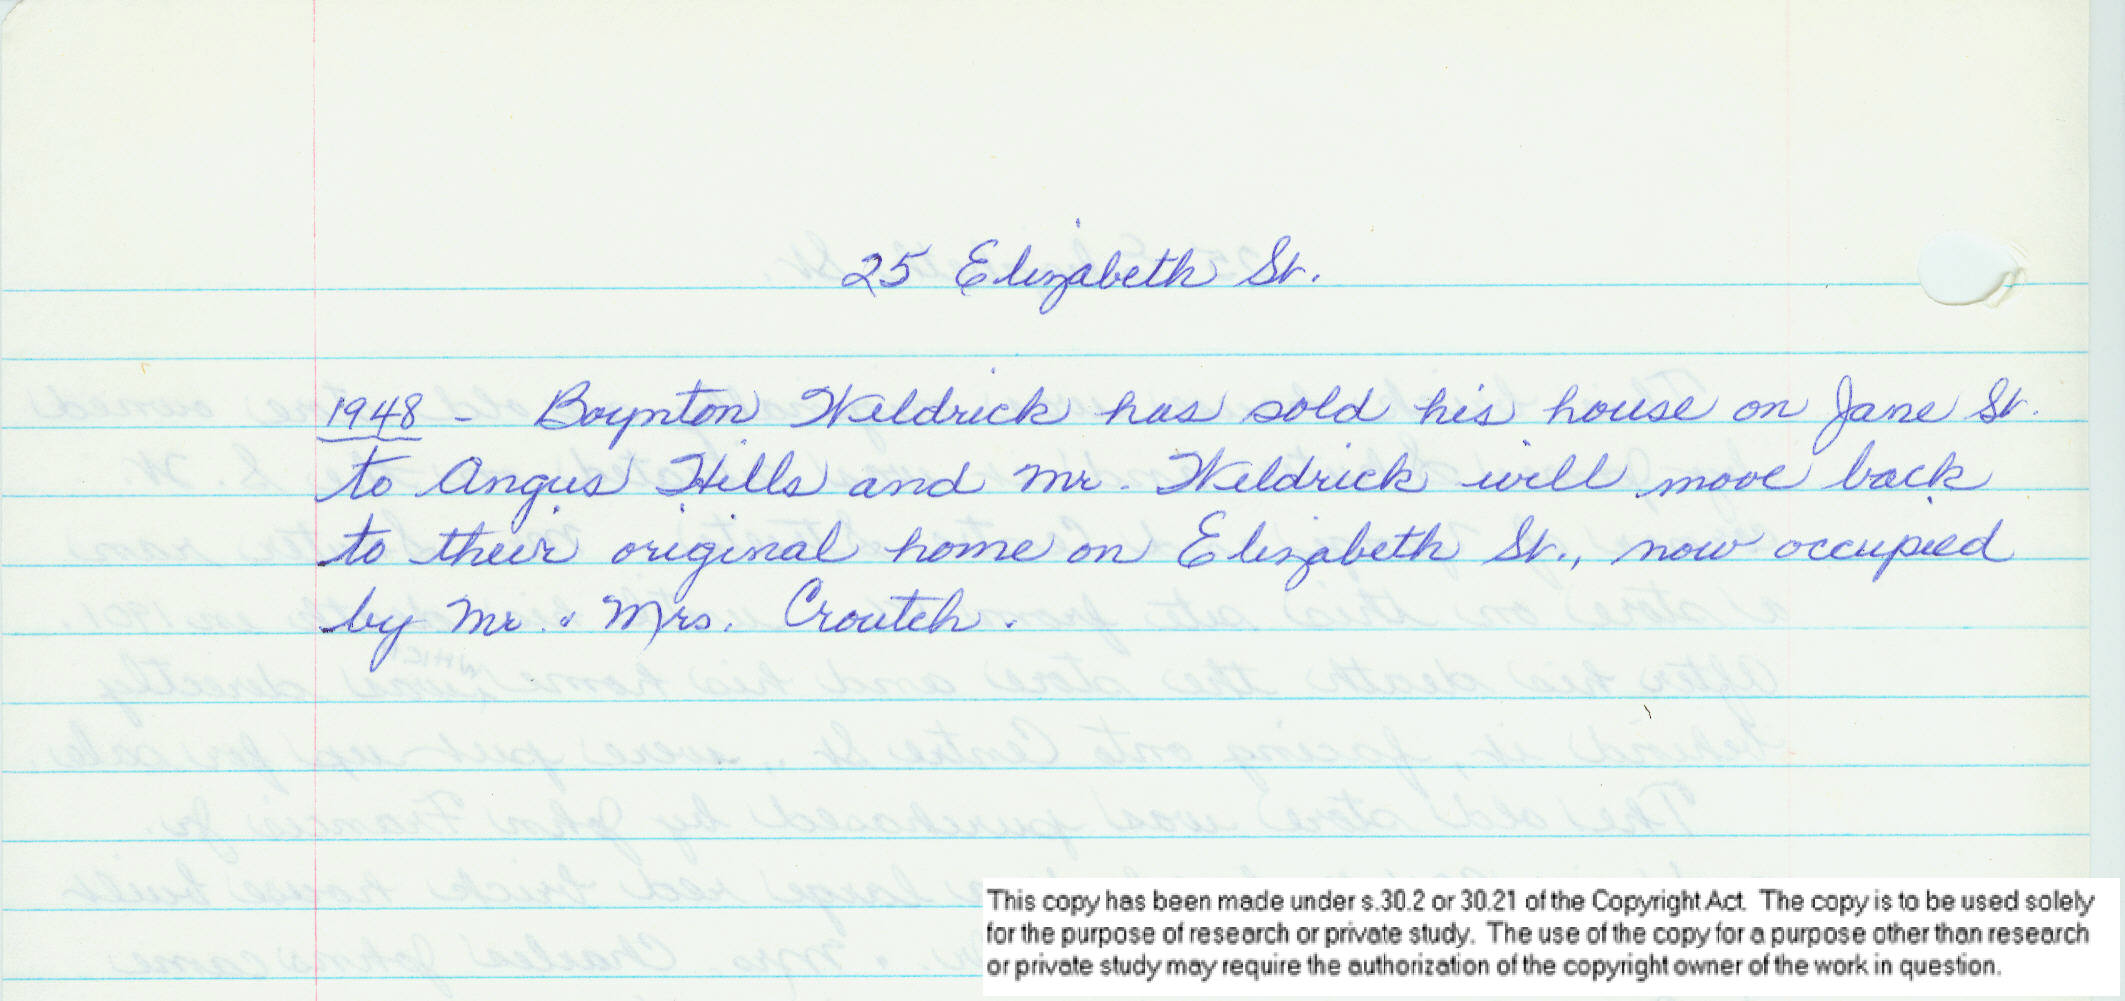 25 Elizabeth St.
1948 - Boynton Weldrick has sold his house on Jane St.
to Angus Hills and Mr. Weldrick will move back
to their original home on Elizabeth St., now occupied
by Mr. & Mrs. Croutch.
This copy has been made under s.30.2 or 30.21 of the Copyright Act. The copy is to be used solely
for the purpose of research or private study. The use of the copy for a purpose other than research
or private study may require the authorization of the copyright owner of the work in question.